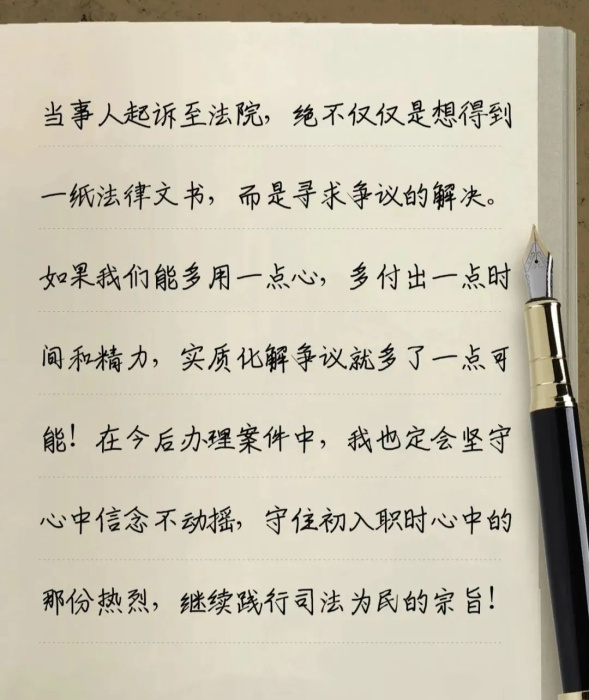 当事人起诉至法院，绝不仅仅是想得到
一纸法律文书，而是寻求争议的解决。
如果我们能多用一点心，多付出一点时
间和精力，实质化解争议就多了一点可
能！在今后办理案件中，我也定会坚守
心中信念不动摇，守住初入职时心中的
那份热烈，继续践行司法为民的宗旨！